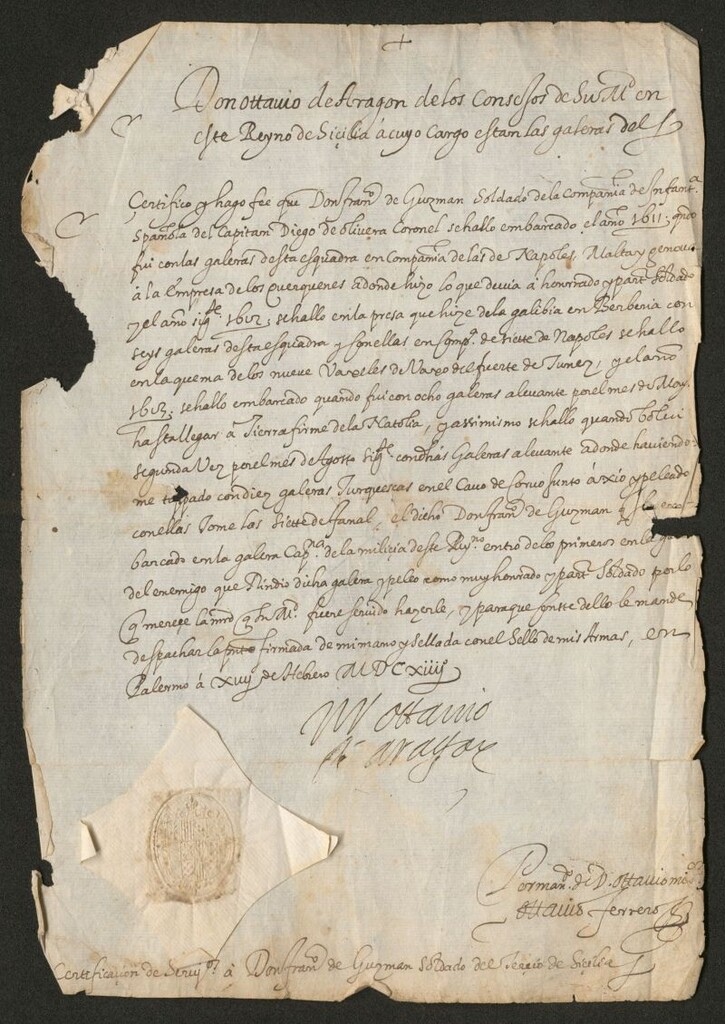 Don ottauio de Aragon de los Consejos de Su Md. en
este Reyno de Siçilia á cuyo Cargo estan las galeras del
Çertifico y hago fee que Don franco. de Guzman Soldado de la Compañia de Infanta.
Española del Capitan Diego de oliuera Coronel se hallo embarcado el año 1611; qndo
fui con las galeras desta esquadra en Compañia de las de Napoles, Malta y genoua
á la Empresa de los querquenes adonde hizo lo que deuia á honrrado y partr. Soldado
y el año sigte. 1612; se hallo en la presa que hize de la galibia en Berberia con
seys galeras desta esquadra y Con ellas en Compa. de siette de Napoles se hallo
en la quema de los nueve Vaxeles de Vaxo del fuerte de Tunez, y el año
1613; se hallo embarcado quando fui con ocho galeras a leuante por el mes de May
hasta llegar á Tierra firme de la Natolia, y assimismo se hallo quando bolbi
segunda Vez por el mes de Agosto sigte. con dhas Galeras a leuante adonde hauiendo
me toppado con diez galeras Turquescas en el Cauo de Corvo junto á Xio y peleado
con ellas Tome las Siette de fanal, el dicho Don franco. de Guzman
barcado en la galera Capna. de la miliçia deste Reyno entro de los primeros en la
del enemigo que Rindio dicha galera y peleo como muy honrrado y partr. Soldado por lo
q mereçe la mrd q Su Md. fuere seruido hazerle, y para que Conste dello le mande
despachar la pnte firmada de mi mano y Sellada con el Sello de mis Armas, en
Palermo á xviij de Hebrero MDCxiiij
Don ottauio
de aragon
Por mando. de D. ottauio mi sor.
ottauio ferrero
Certificaçion de Seruios. á Don franco. de Guzman Soldado del Terçio de Siçilia